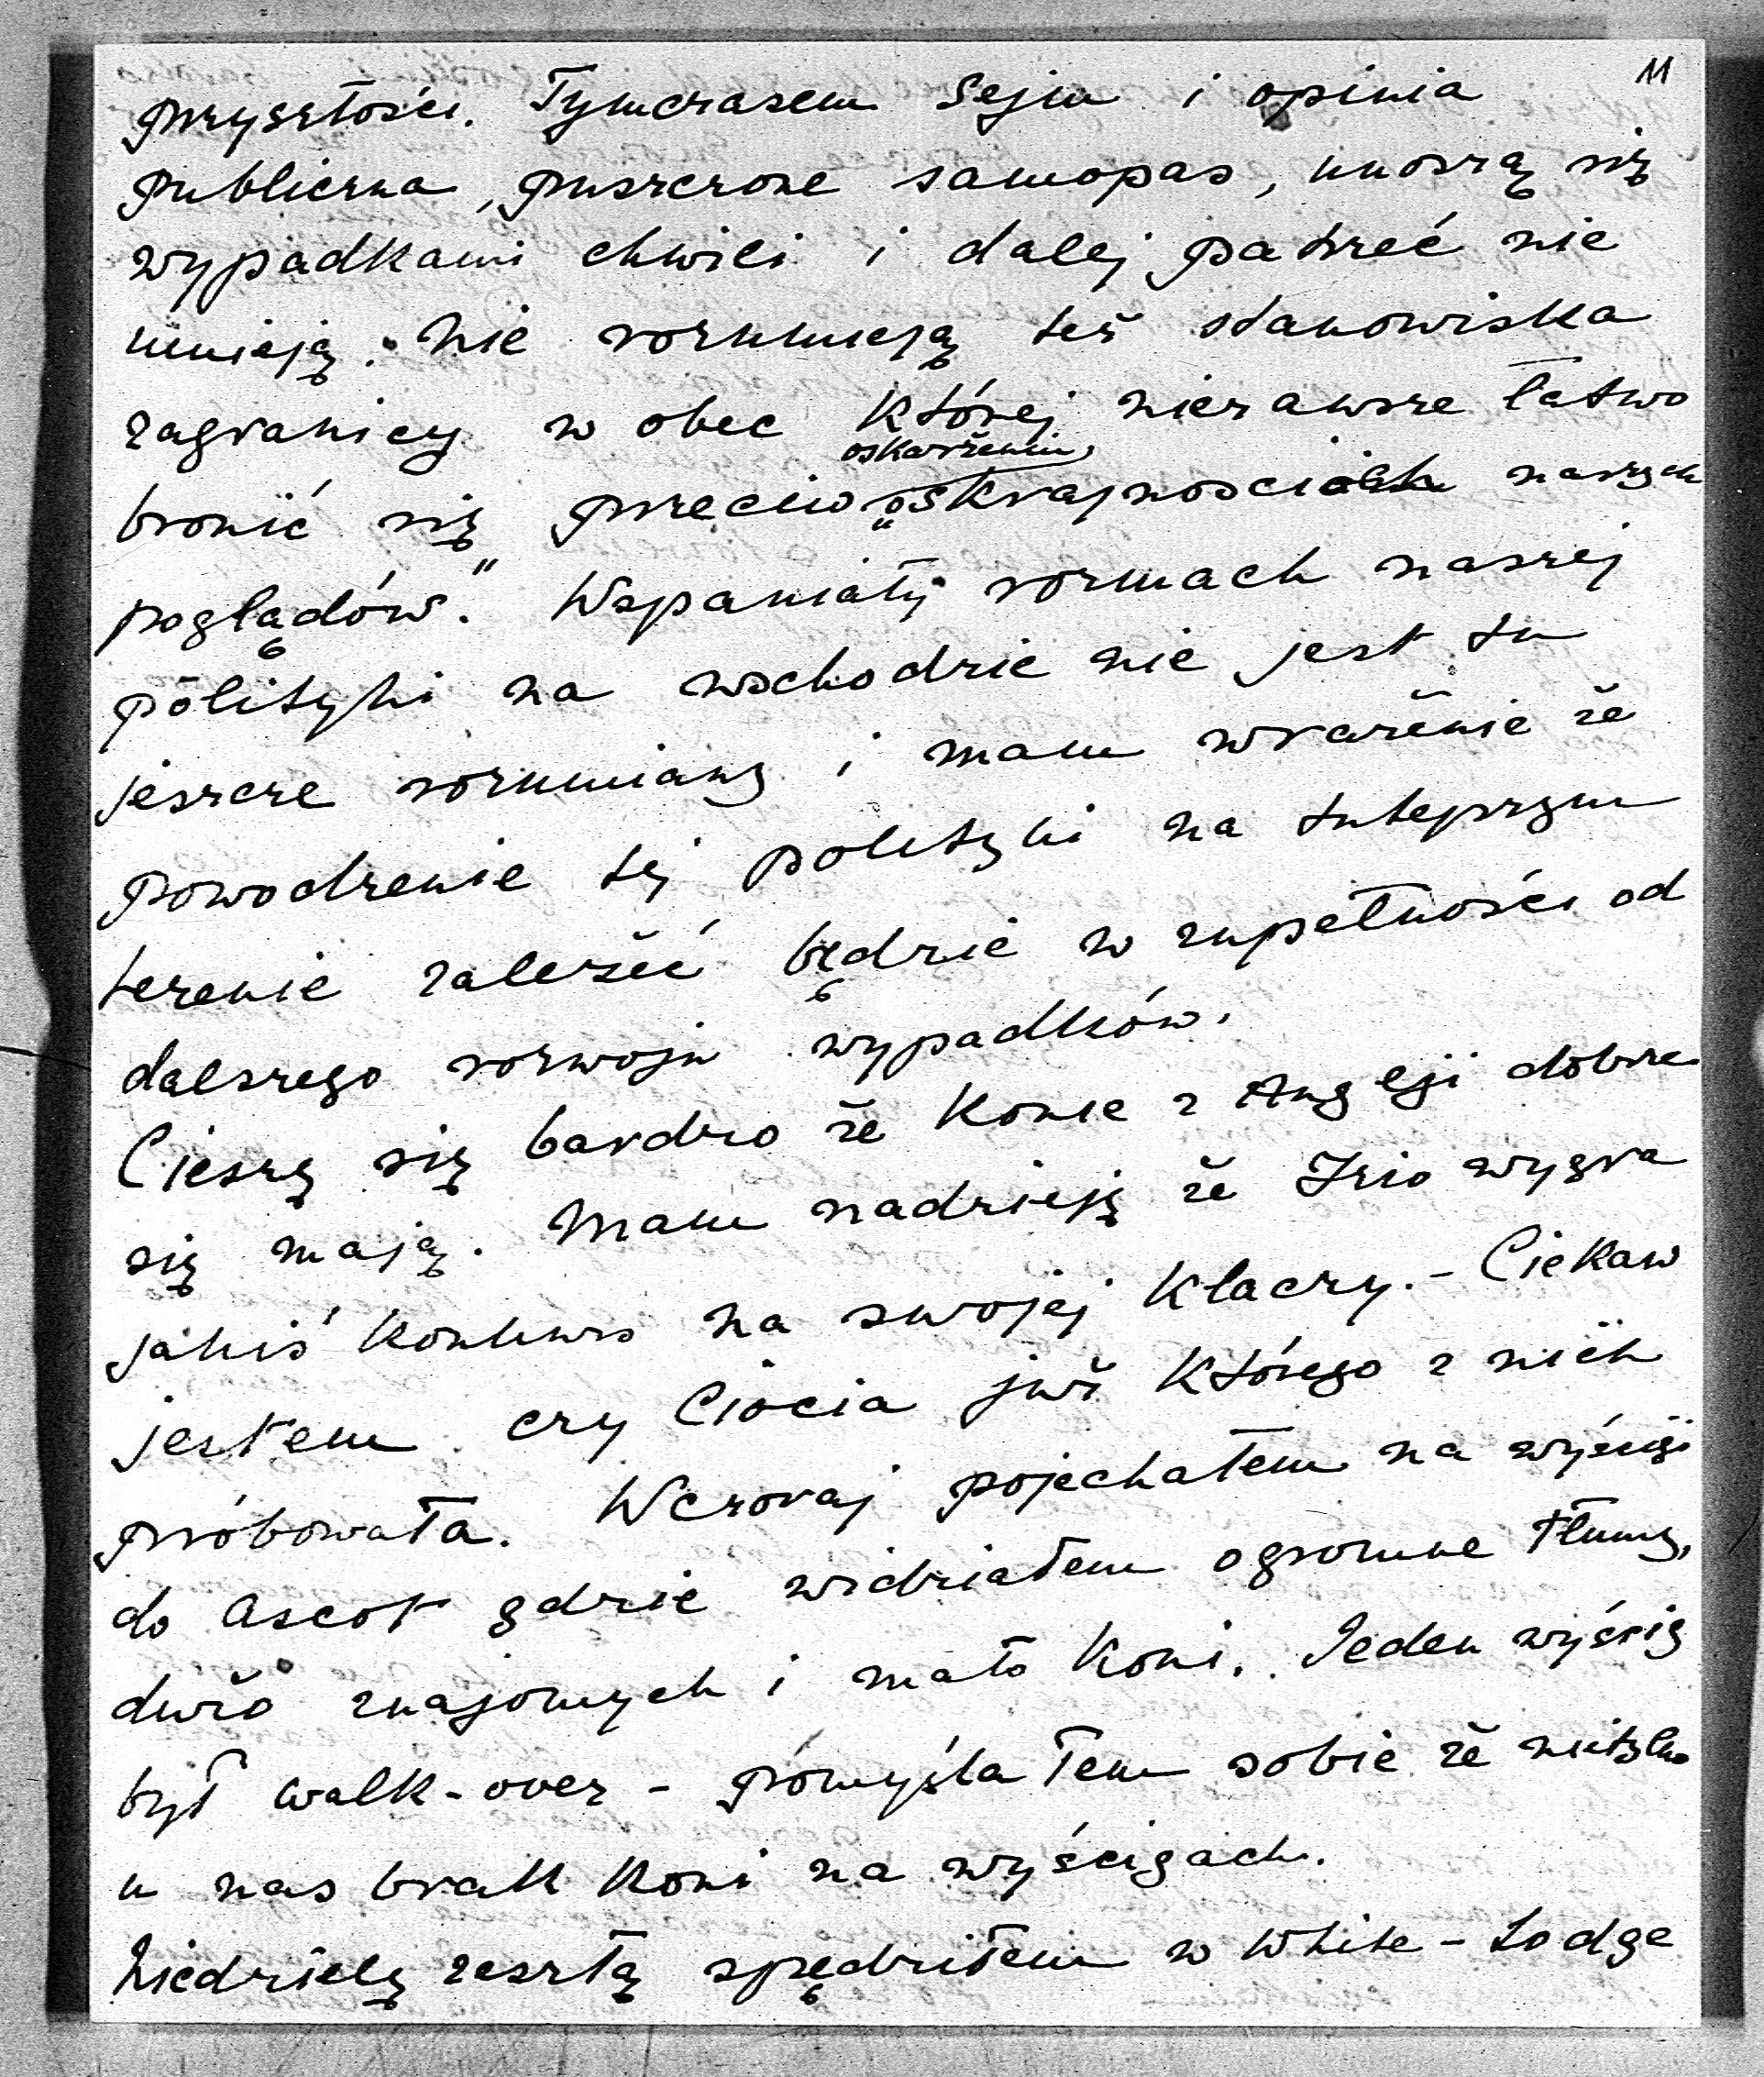 11
przyszłości. Tymczasem Sejm i opinia
publiczna, puszczone samopas, unoszą się
wypadkami chwili i dalej patrzeć nie
umieją. Nie rozumieją też stanowiska
zagranicy w obec której niezawsze łatwo
oskarżeniu
bronić się przeciw „o skrajnościach naszych
poglądów." Wspaniały rozmach naszej
polityki na wschodzie nie jest tu
jeszcze rozumiany i mam wrażenie że
powodzenie tej polityki na tutejszym
terenie zależeć będzie w zupełności od
dalszego rozwoju wypadków.
Cieszę się bardzo że konie z Anglji dobrze
się mają. Mam nadzieję że wygra
jakiś konkurs na swojej klaczy. - Ciekaw
jestem czy Ciocia już którego z nich
próbowała. Wczoraj pojechałem na wyścigi
do Ascot gdzie widziałem ogromne tłumy,
dużo znajomych i mało koni. Jeden wyścig
był walk-over - pomyślałem sobie że nietylko
u nas brak koni na wyścigach.
Niedzielę zeszłą spędziłem w White-Lodge